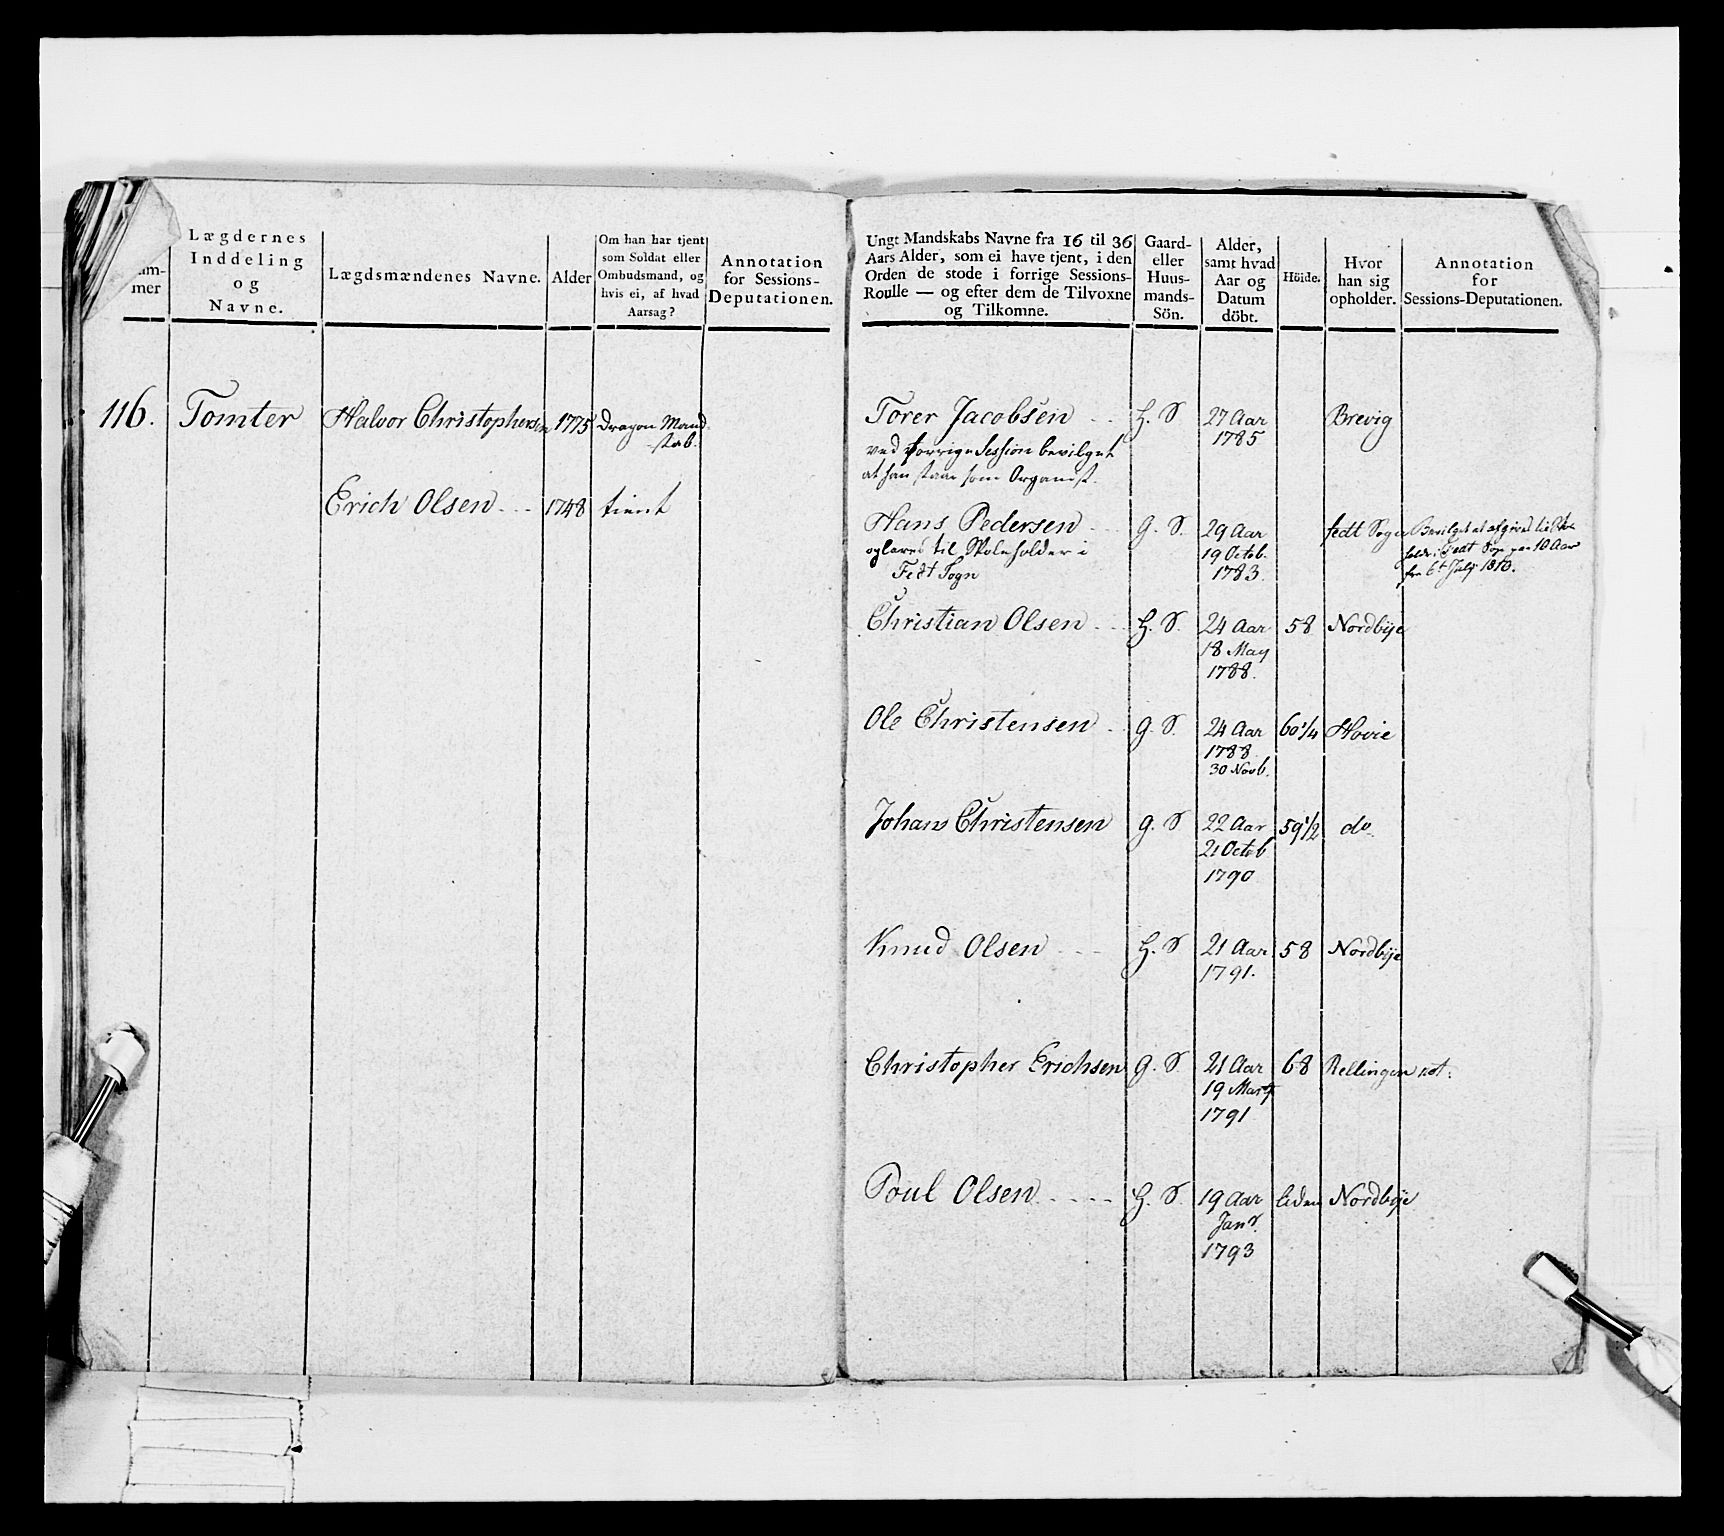 mer
Lægdernes
Inddeling
og
Navne.
Lægdsmændenes Navne.
Alder
Om han har tjent
som Soldat eller
Ombudsmand, og
hvis ei, af hvad
Aarsag?
Annotation
for Sessions-
Deputationen.
116. Tomter Halvor Christophersen 1775 Dragon Mand
stab.
Erich Olsen 1748 tient
Ungt Mandskabs Navne fra 16 til 36
Aars Alder, som ei have tjent, i den
Orden de stode i forrige Sessions-
Roulle — og efter dem de Tilvoxne
og Tilkomne.
Gaard-
eller
Huus-
mands-
Sön.
Alder,
samt hvad
Aar og
Datum
döbt.
Höide.
Hvor
han sig
opholder.
Annotation
for
Sessions-Deputationen.
Torer Jacobsen H. S 27 Aar Brevig
1785
ved forrige Session bevilget
at han staar som Organist.
Hans Pedersen G. S. 29 Aar fedt Sogn
19 Octob.
1783.
oplæres til Skoleholder i
Fedt Sogn
Bevilget at afgives til
i Fedt Sogn paa 10 Aar
fra 6t July 1810.
Christian Olsen H. S. 24 Aar 58 Nordbye
18 May
1788.
Ole Christensen G. S. 24 Aar 60 1/4 Hovie
1788
30 Novb.
Johans Christensen G. S 22 Aar 59 1/2 do
21 Octob
1790
Knud Olsen H. S 21 Aar 58 Nordbye
1791.
Christopher Erichsen G. S 21 Aar 68 Rellingen
19 Marty
1791
Poul Olsen H. S. 19 Aar liden Nordbye
Janr.
1793